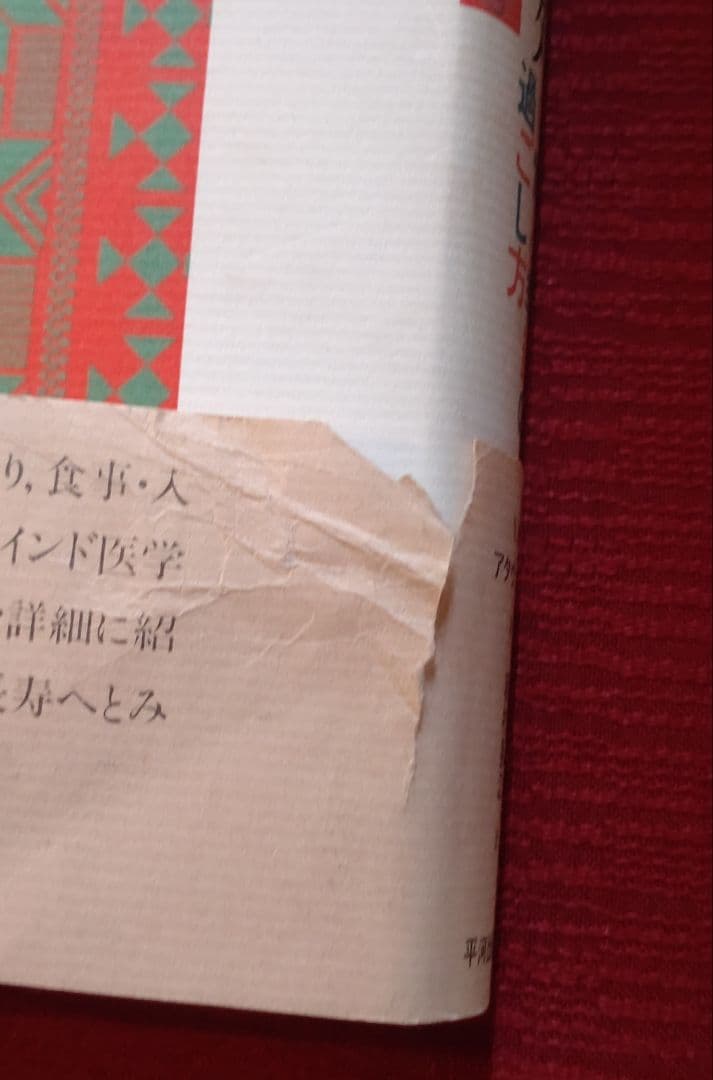 り,食事・入
インド医学
詳細に紹
寿へとみ
過ごし方
アタ
平河